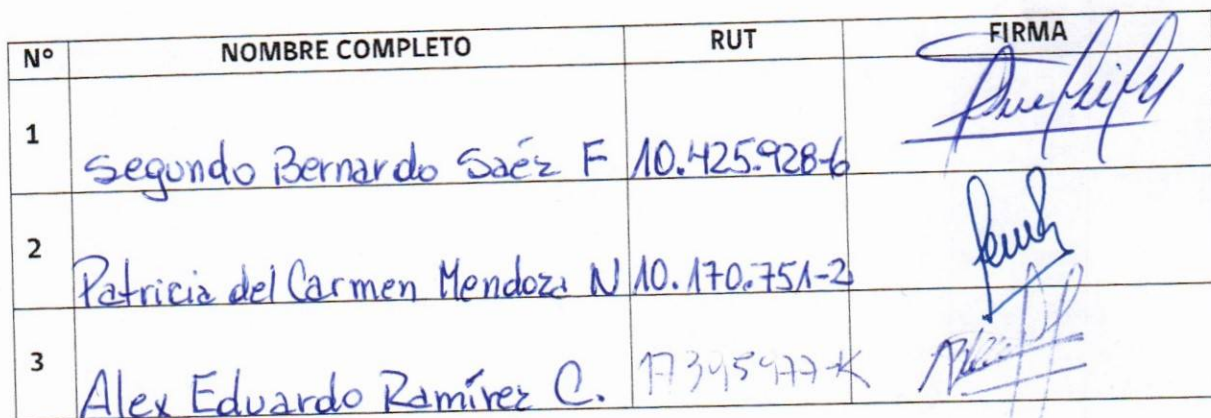 Nº NOMBRE COMPLETO RUT FIRMA
1 Segundo Bernardo Saéz F 10.425.928-6
2 Patricia del Carmen Mendoza N 10.170.751-2
3 Alex Eduardo Ramírez C.